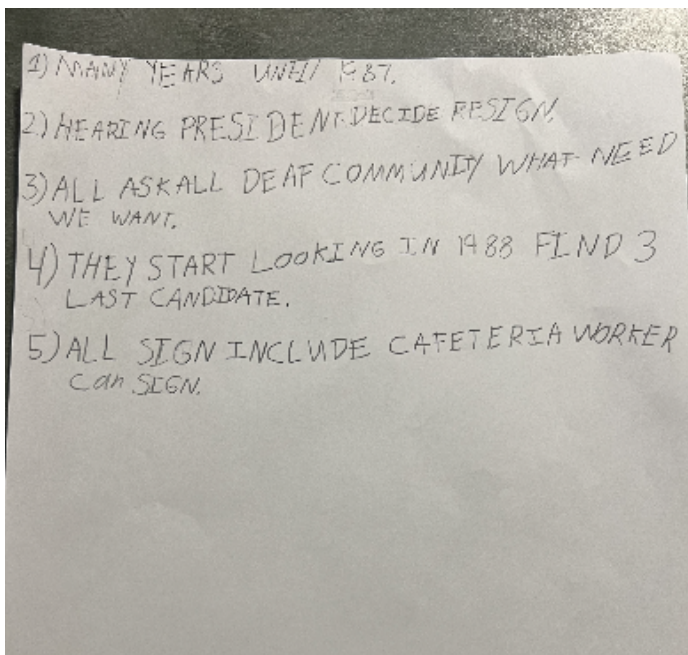 1) MANY YEARS UNTIL 1987.
2) HEARING PRESIDENT DECIDE RESIGN.
3) ALL ASK ALL DEAF COMMUNITY WHAT NEED
WE WANT.
4) THEY START LOOKING IN 1988 FIND 3
LAST CANDIDATE.
5) ALL SIGN INCLUDE CAFETERIA WORKER
can SIGN.